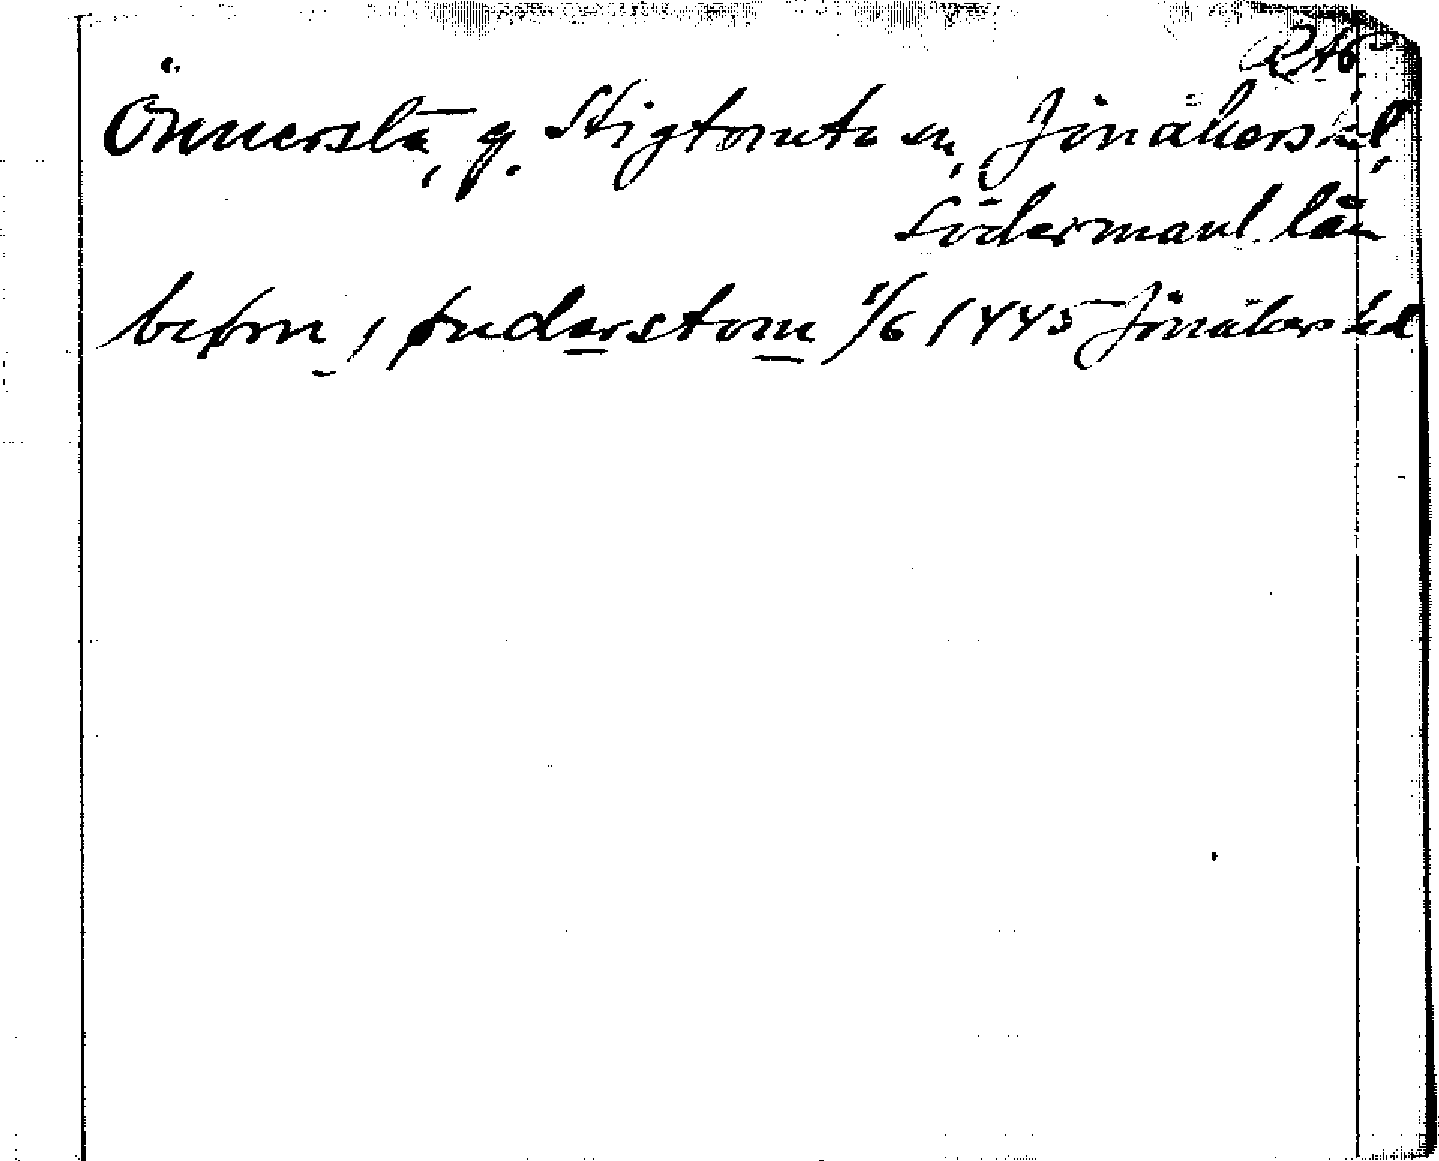 Önnersta, g. Stigtomta sn, Jönåkers hd,
Södermanl. län
bepørn, i ønderstom 1/6 1445 Jönåkers hd